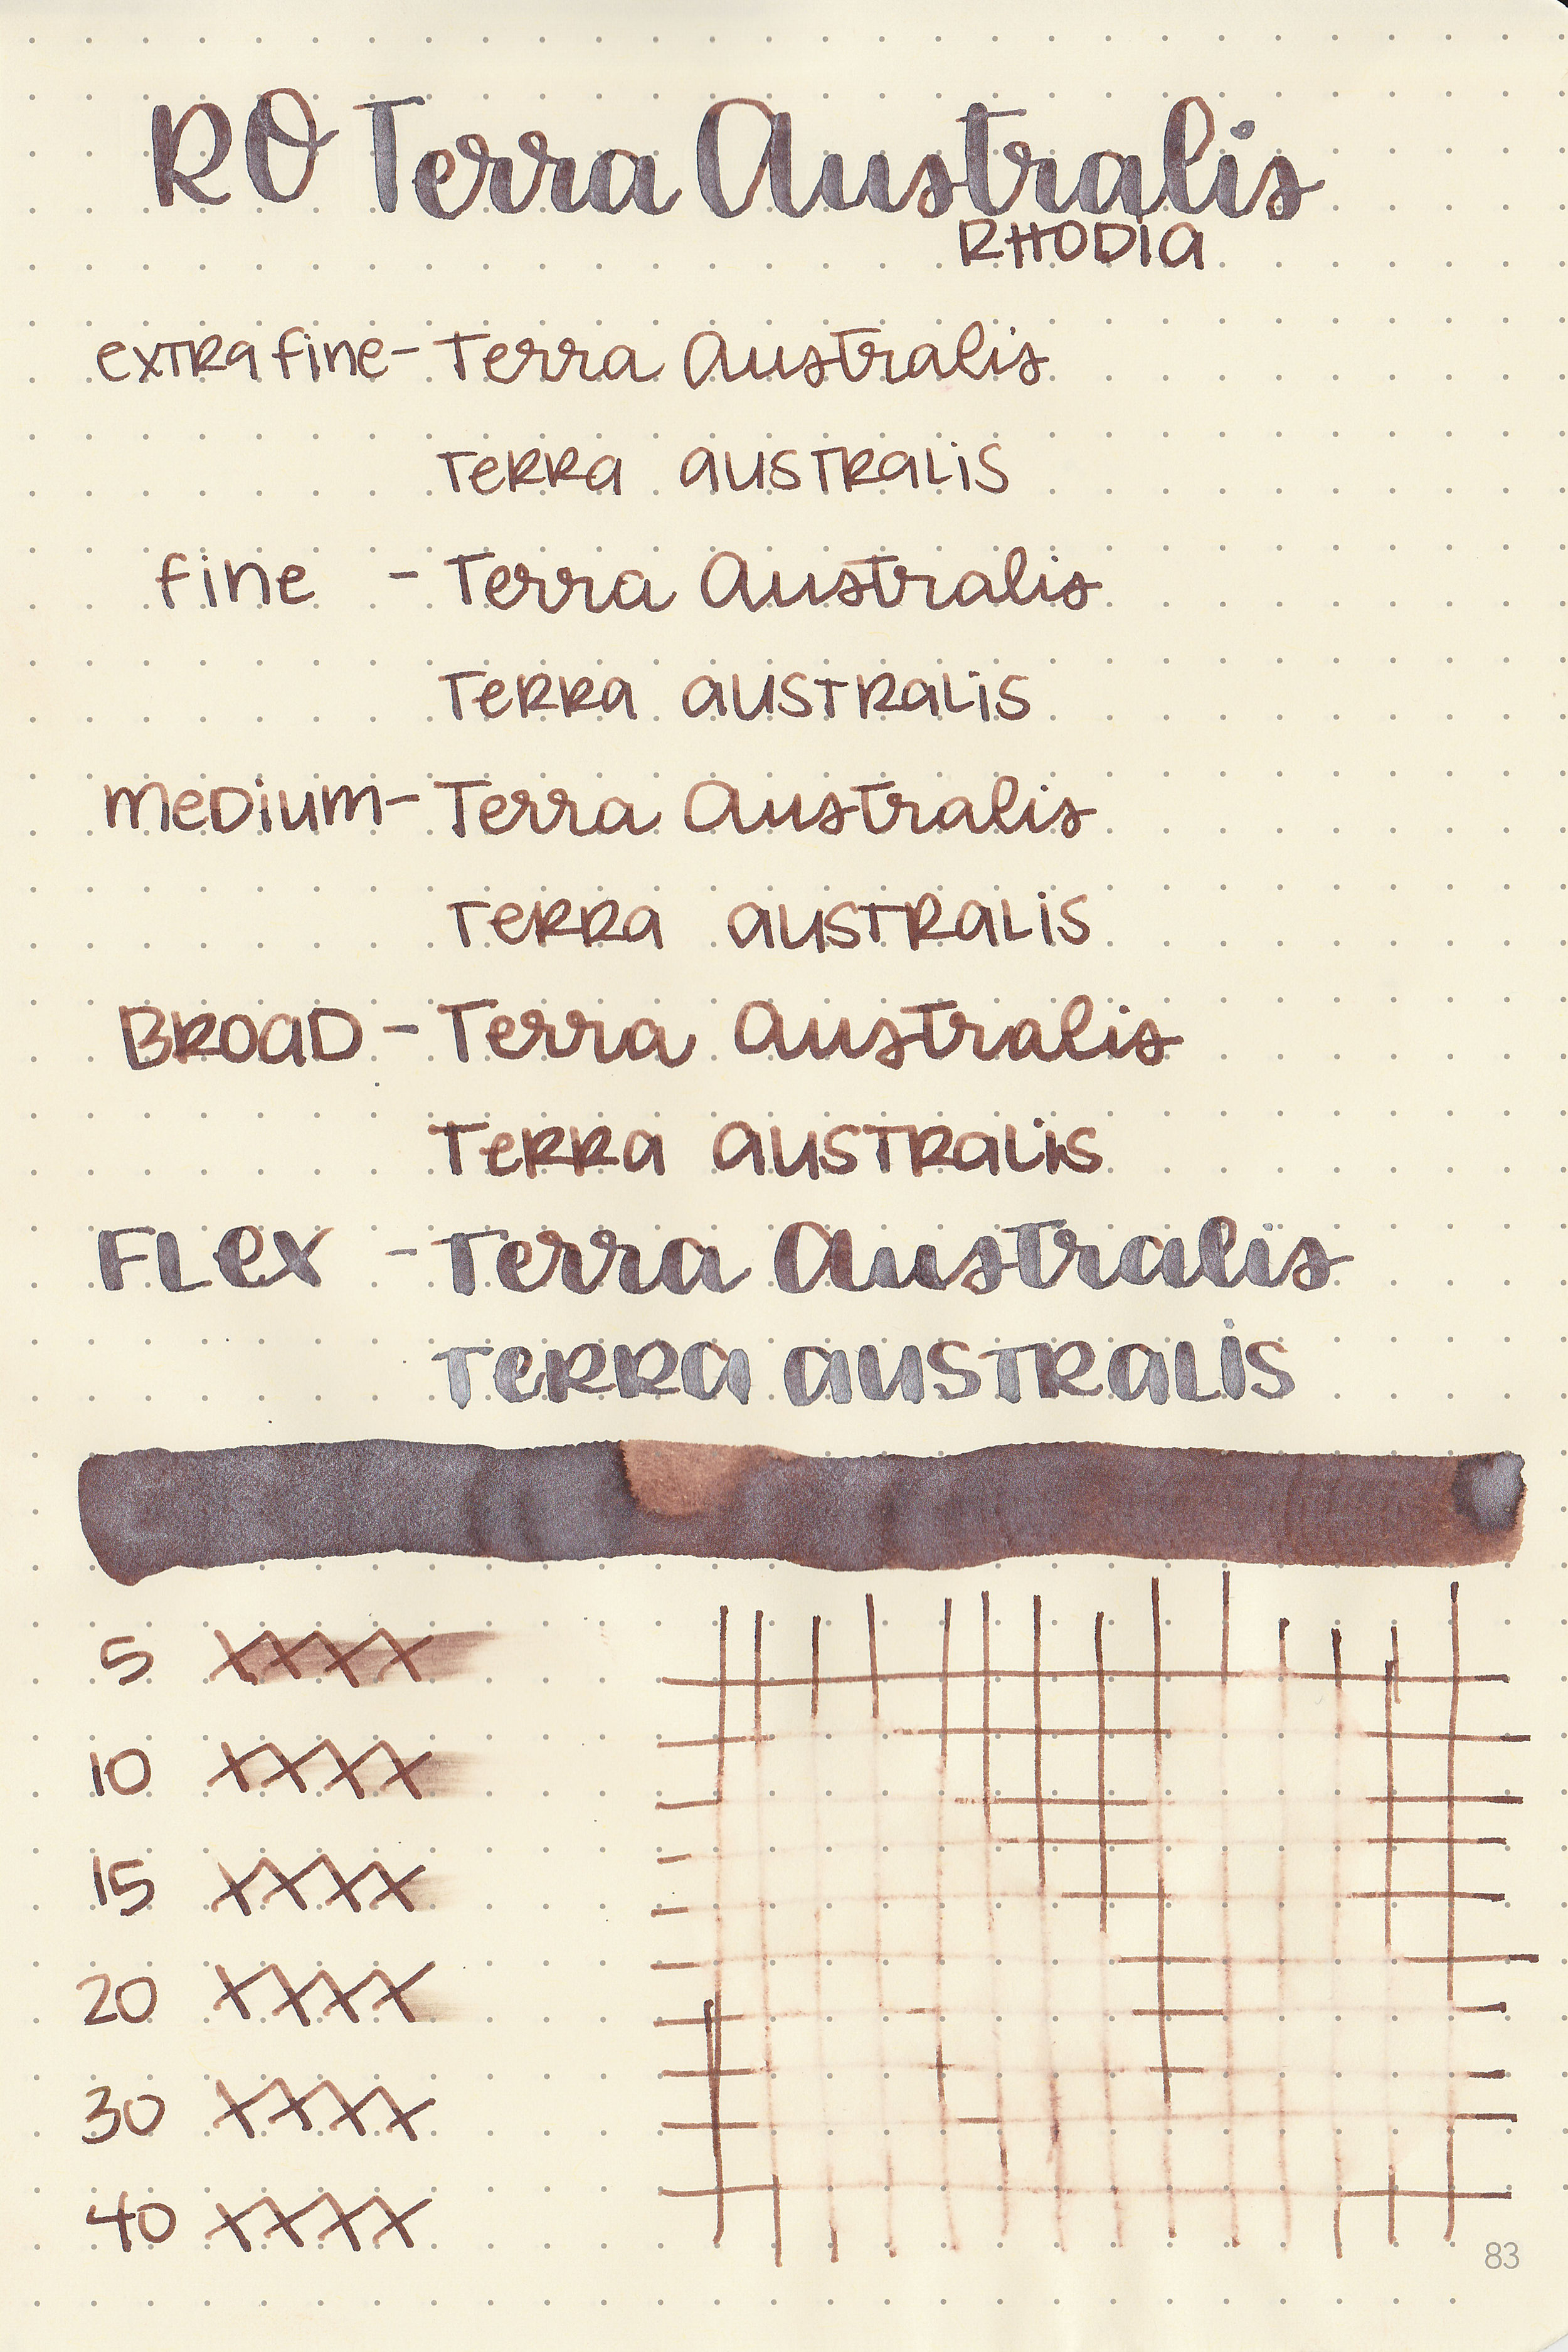 RO Terra Australis
RHODIA
extra fine - Terra Australis
Terra Australis
fine - Terra Australis
Terra Australis
Medium - Terra Australis
Terra Australis
BROAD - Terra Australis
Terra Australis
FLex - Terra Australis
Terra Australis
5 XXXX
10 XXXX
15 XXXX
20 XXXX
30 XXXX
40 XXXX
83